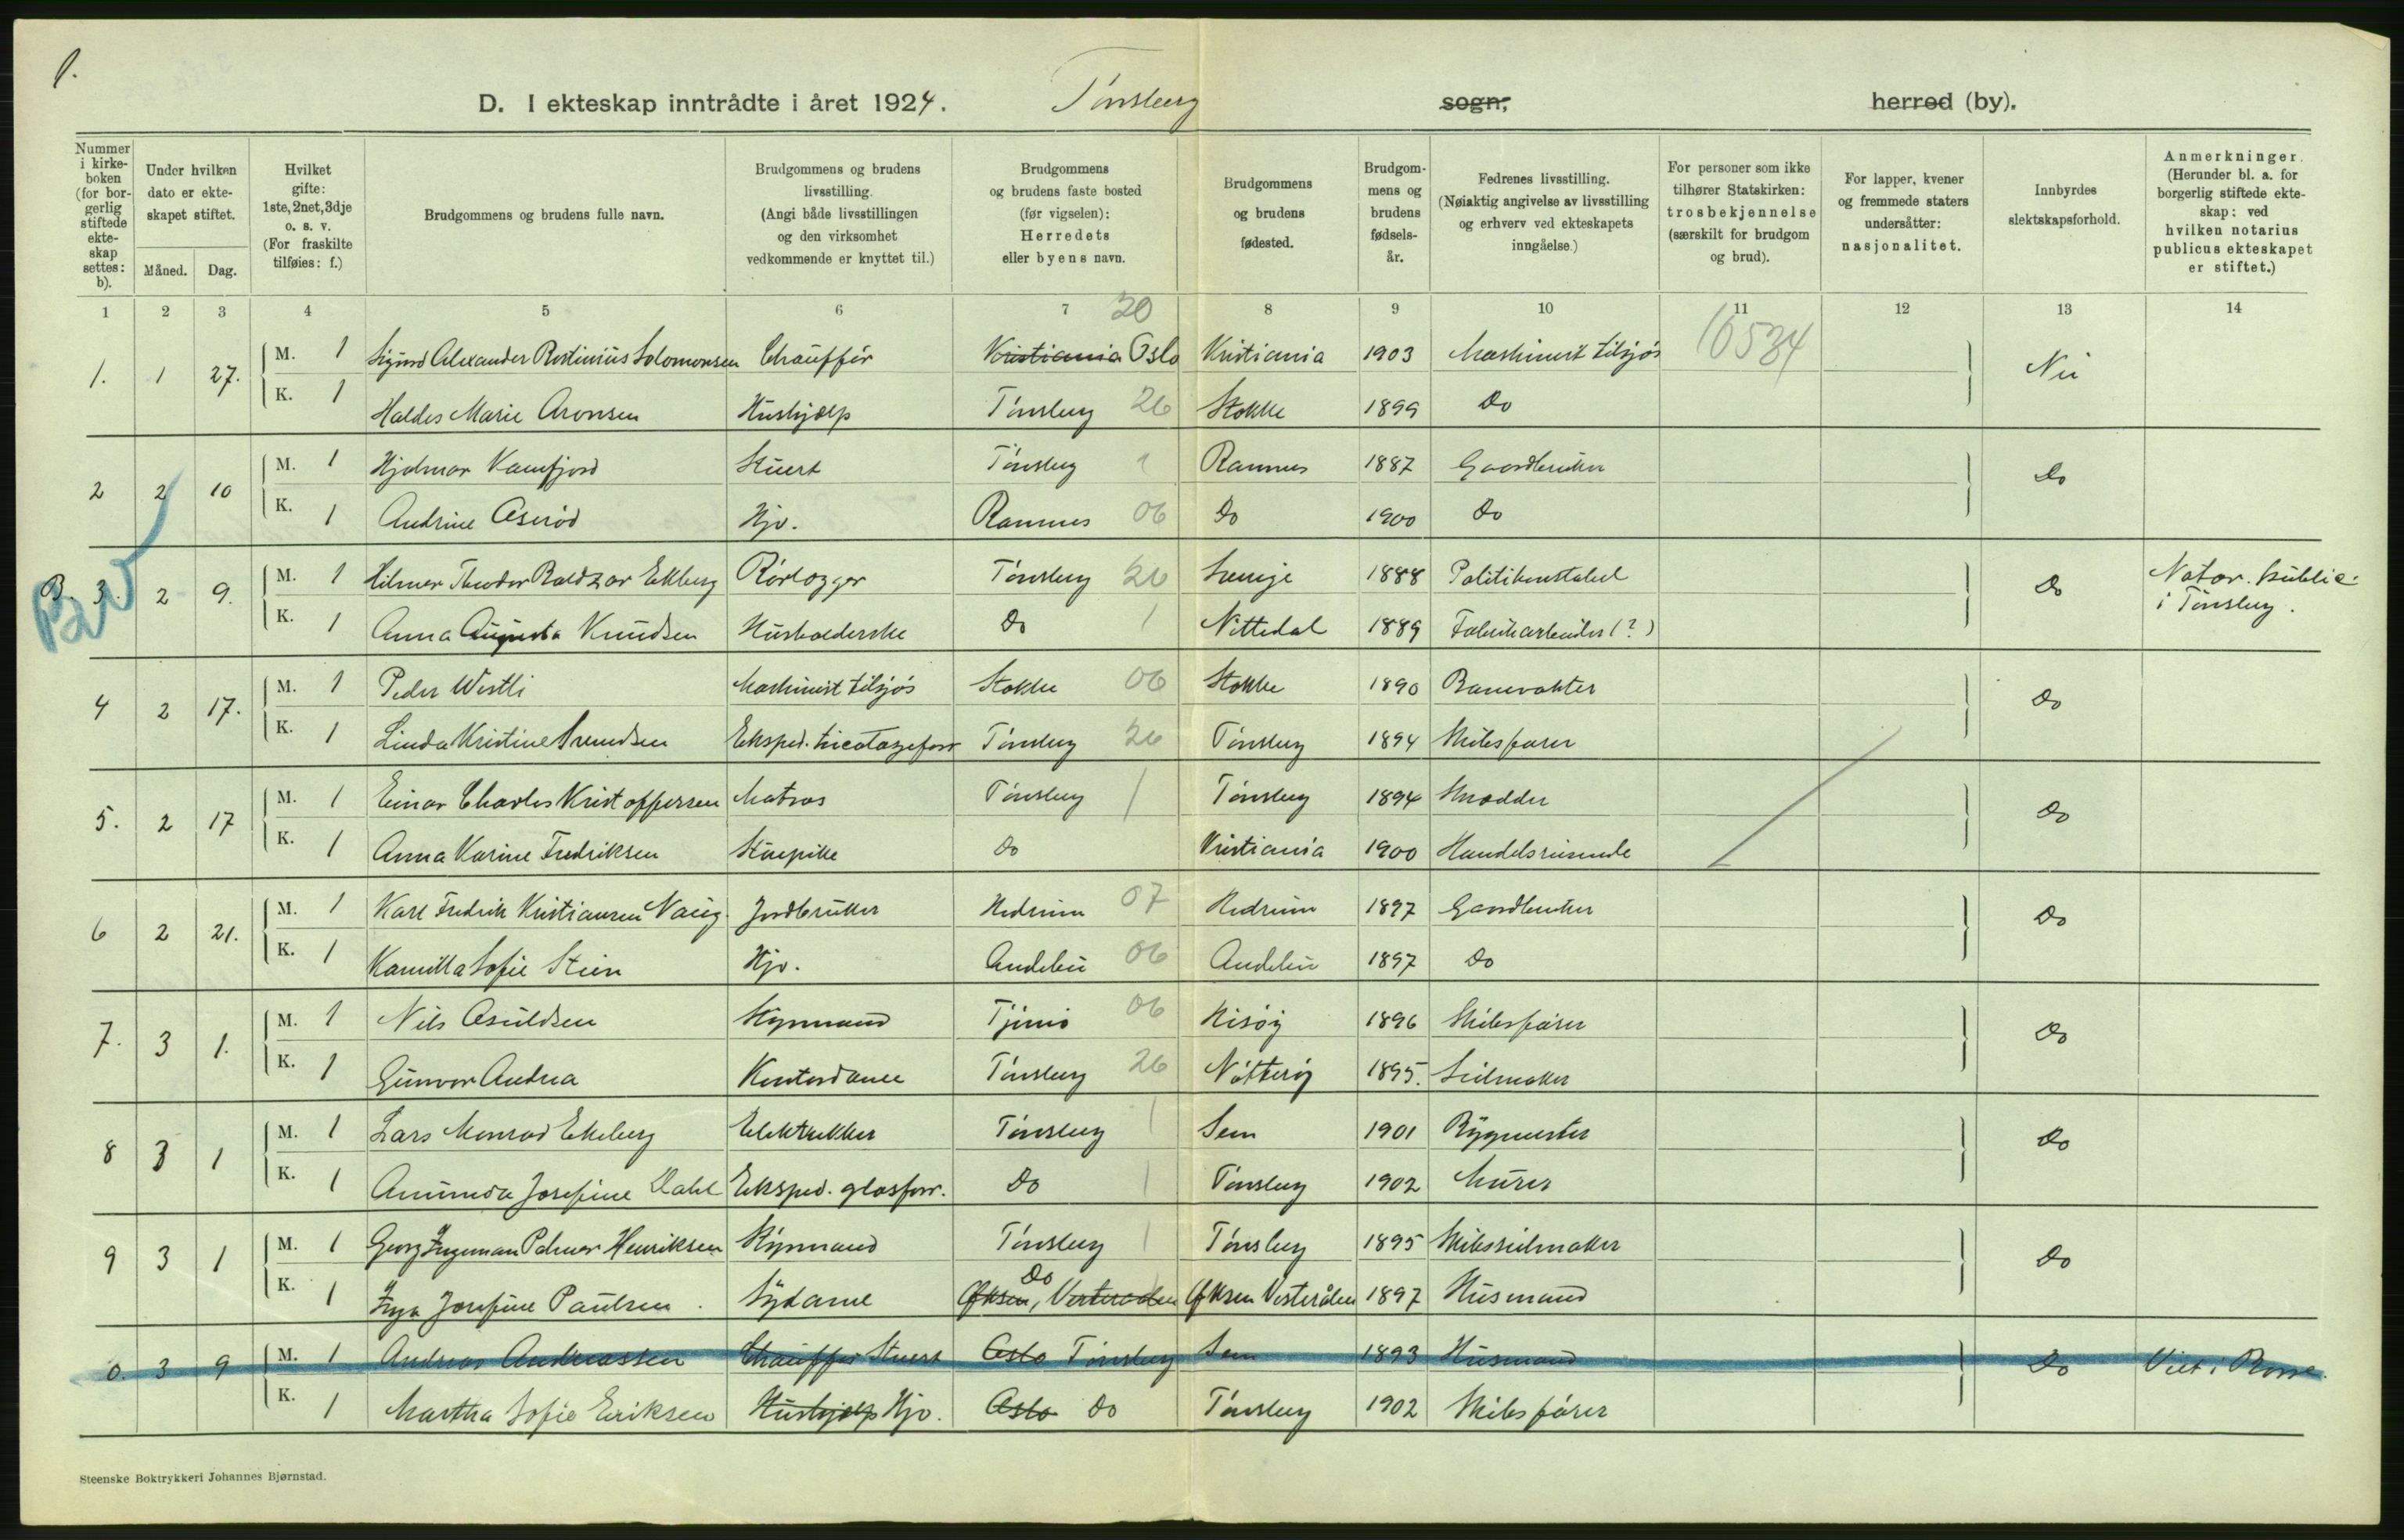 1.
D. I ekteskap inntrådte i året 1924. Tønsberg sogn, herred (by).
Nummer i kirkeboken (for borgerlig stiftede ekteskap settes: b).
Under hvilken dato er ekteskapet stiftet.
Måned. Dag.
Hvilket gifte: 1ste, 2net, 3dje o. s. v. (For fraskilte tilføies: f.)
Brudgommens og brudens fulle navn.
Brudgommens og brudens livsstilling. (Angi både livsstillingen og den virksomhet vedkommende er knyttet til.)
Brudgommens og brudens faste bosted (før vigselen): Herredets eller byens navn.
Brudgommens og brudens fødested.
Brudgommens og brudens fødselsår.
Fedrenes livsstilling. (Nøiaktig angivelse av livsstilling og erhverv ved ekteskapets inngåelse.)
For personer som ikke tilhører Statskirken: trosbekjennelse (særskilt for brudgom og brud).
For lapper, kvener og fremmede staters undersåtter: nasjonalitet.
Innbyrdes slektskapsforhold.
Anmerkninger. (Herunder bl. a. for borgerlig stiftede ekteskap: ved hvilken notarius publicus ekteskapet er stiftet.)
1 2 3 4 5 6 7 8 9 10 11 12 13 14
20
1. 1 27. M. 1 Sigurd Alexander Rostinius Solomonsen Chauffør Kristiania Oslo Kristiania 1903 Maskinist tilsjøs 10534 Nei
K. 1 Haldis Marie Aronsen Hushjælp Tønsberg 26 Stokke 1899 Do
2 2 10 M. 1 Hjalmar Kamfjord Stuert Tønsberg 1 Ramnes 1887 Gaardbruker Do
K. 1 Andrine Aserød Hjv. Ramnes 06 Do 1900 Do
B. 3. 2 9. M. 1 Hilmer Theodor Baldzar Ekberg Rørlegger Tønsberg 26 Sverige 1888 Politikonstabel Do Notar. public. i Tønsberg.
BV
K. 1 Anna Augusta Knudsen Husholderske Do 1 Nittedal 1889 Fabrikarbeider (?)
4 2 17. M. 1 Peder Westli Maskinist tilsjøs Stokke 06 Stokke 1890 Banevokter Do
K. 1 Linda Kristine Svendsen Eksped. tricotageforr Tønsberg 26 Tønsberg 1894 Skibsfører
5. 2 17 M. 1 Einar Charles Kristoffersen Matros Tønsberg 1 Tønsberg 1894 Skrædder Do
K. 1 Anna Karine Fredriksen Stuepike Do Kristiania 1900 Handelsreisende
6 2 21. M. 1 Karl Fredrik Kristiansen Naug. Jordbruker Hedrum 07 Hedrum 1897 Gaardbruker Do
K. 1 Kamilla Sofie Stien Hjv. Andebu 06 Andebu 1897 Do
7. 3 1. M. 1 Nils Asuldsen Styrmand Tjømø 06 Hisøy 1896 Skibsfører Do
K. 1 Gunvor Andrea Kontordame Tønsberg 26 Nøtterøy 1895. Seilmaker
8 3 1 M. 1 Lars Monrad Ekeberg Elektrikker Tønsberg 1 Sem 1901 Bygmester Do
K. 1 Amunda Josefine Dahl Eksped. glasforr. Do 1 Tønsberg 1902 Murer
9 3 1 M. 1 Georg Ingeman Palmer Henriksen Styrmand Tønsberg 1 Tønsberg 1895 Skibsseilmaker Do
K. 1 Inga Josefine Paulsen. Sydame Øksen, Vesteraalen Do Øksen Vesterålen 1897 Husmand
0. 3 9 M. 1 Andreas Andreassen Chauffør Stuert Oslo Tønsberg Sem 1893 Husmand Do Viet i Borre.
K. 1 Martha Sofie Eriksen Hushjælp Hjv. Oslo Do Tønsberg 1902 Skibsfører
Steenske Boktrykkeri Johannes Bjørnstad.